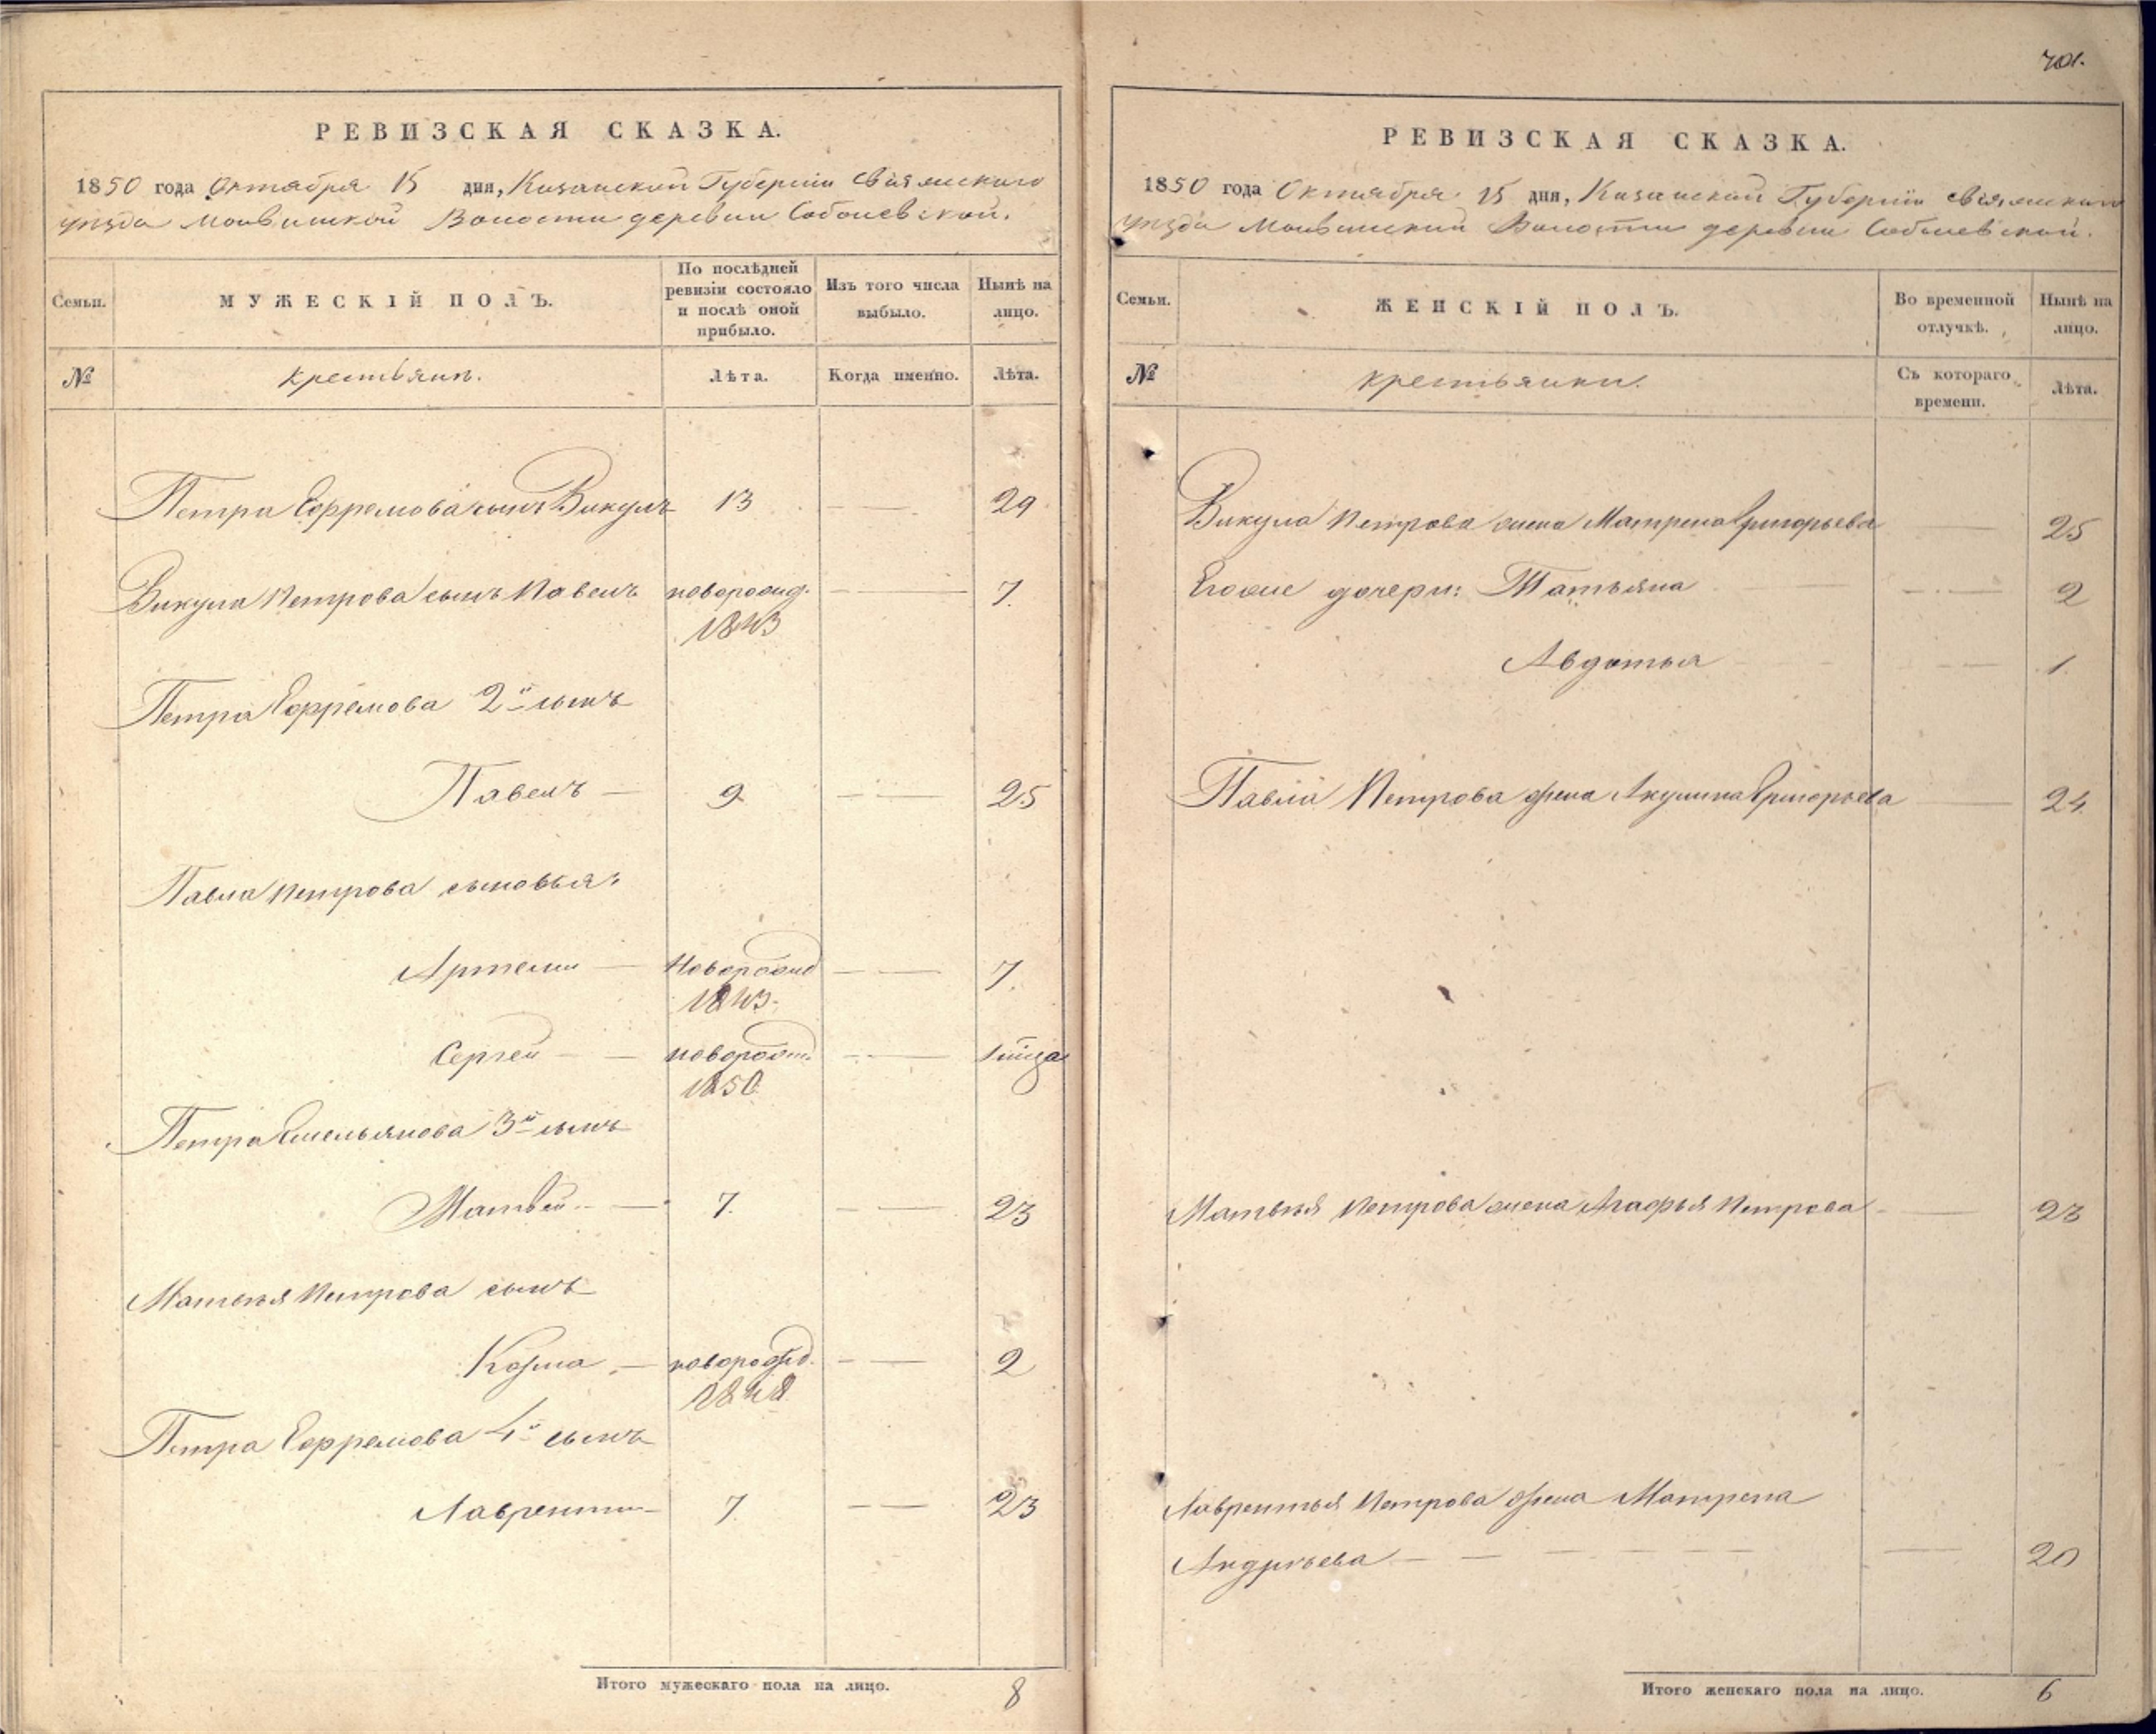 701.
РЕВИЗСКАЯ СКАЗКА.
1850 года Октября 15 дня, Казанской Губернiи Свiяжскаго
уѣзда Молвинской Волости деревни Соболевской.
Семьи.
МУЖЕСКІЙ ПОЛЪ.
По послѣдней
ревизіи состояло
и послѣ оной
прибыло.
Изъ того числа
выбыло.
Нынѣ на
лицо.
№
крестьянъ.
Лѣта.
Когда именно.
Лѣта.
Петра Ефремова сынъ Викулъ 13 — — 29
Викула Петрова сынъ Павелъ новорожд. — — 7.
1843
Петра Ефремова 2й сынъ
Павелъ — 9 — — 25
Павла Петрова сыновья:
Артемiй — новорожд — — 7.
1843.
Сергей — — новорожд. — —
1850.
Петра Емельянова 3й сынъ
Матвей — 7. — — 23
Матвѣя Петрова сынъ
Козма — новорожд. — — 2
1848
Петра Ефремова 4й сынъ
Лаврентiй — 7. — — 23
Итого мужескаго пола на лицо. 8
РЕВИЗСКАЯ СКАЗКА.
1850 года Октября 15 дня, Казанской Губернiи Свiяжскаго
уѣзда Молвинской Волости деревни Соболевской.
Семьи.
ЖЕНСКІЙ ПОЛЪ.
Во временной
отлучкѣ.
Нынѣ на
лицо.
№
крестьянки.
Съ котораго
времени.
Лѣта.
Викула Петрова жена Матрена Григорьева — 25
Егоже дочери: Татьяна — — — 2
Авдотья — — — 1.
Павла Петрова жена Акулина Григорьева — 24
Матвѣя Петрова жена Агафья Петрова — — 23
Лаврентья Петрова жена Матрена
Андреева — — — — — — 20
Итого женскаго пола на лицо. 6